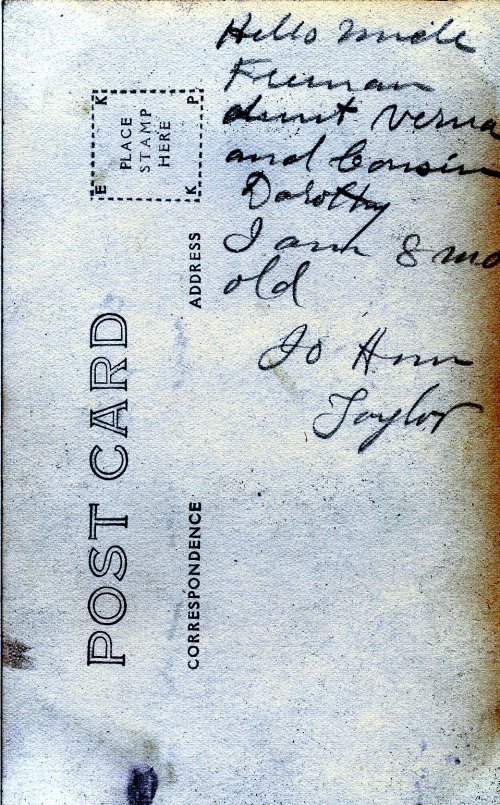 Hello Uncle
Freeman
Aunt Verna
and Cousin
Dorothy
I am 8 mo
old
Jo Ann
Taylor
POST CARD
CORRESPONDENCE
ADDRESS
PLACE
STAMP
HERE
E K K P